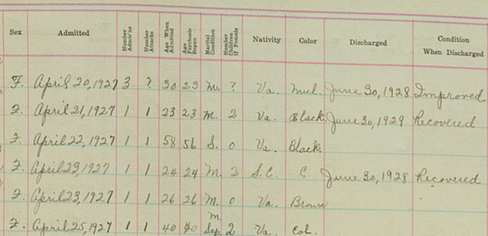 Sex Admitted Number Admit'ns Number Attacks Age When Admitted Age Psychosis Began Marital Condition Number Children if Female Nativity Color Discharged Condition When Discharged
F. April 20, 1927 3 ? 30 23 M. ? Va. Mul. June 30, 1928 Improved
F. April 21, 1927 1 1 23 23 M. 2 Va. Black June 30, 1929 Recovered
F. April 22, 1927 1 1 58 56 S. 0 Va. Black
F. April 23, 1927 1 1 24 24 M. 2 S.C. C. June 30, 1928 Recovered
F. April 23, 1927 1 1 26 26 M. 0 Va. Brown
F. April 25, 1927 1 1 40 M Sep. 2 Va. Col.